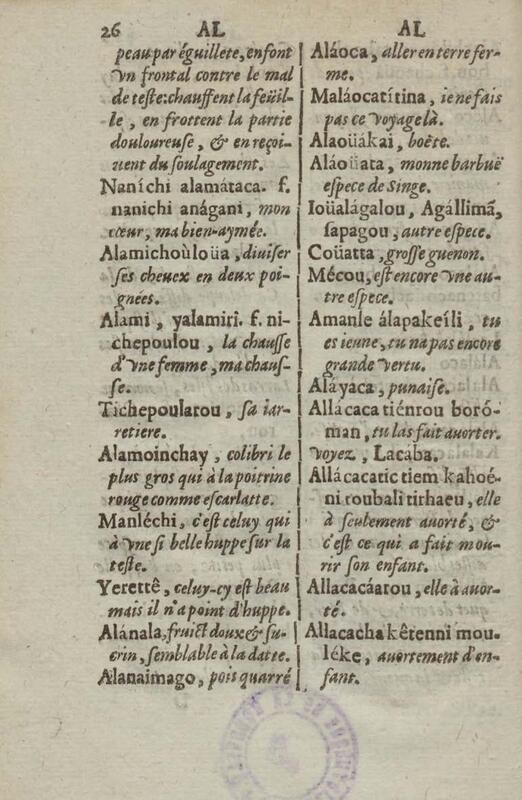 26 AL AL
peau par éguillete, en font
vn frontal contre le mal
de teste: chauffent la feüil-
le, en frottent la partie
douloureuse, & en reçoi-
uent du soulagement.
Naníchi alamátaca. f.
nanichi anágani, mon
cœur, ma bien-aymée.
Alamichoùloüa, diuiser
ses cheuex en deux poi-
gnées.
Alami, yalamiri. f. ni-
chepoulou, la chausse
d'vne femme, ma chaus-
se.
Tichepoularou, sa iar-
retiere.
Alamoinchay, colibri le
plus gros qui à la poitrine
rouge comme escarlatte.
Manléchi, c'est celuy qui
à vne si belle huppe sur la
teste.
Yerettê, celuy-cy est beau
mais il n'a point d'huppe.
Alánala, fruict doux & su-
crin, semblable à la datte.
Alanaimago, pois quarré
Aláoca, aller en terre fer-
me.
Maláocatítina, ie ne fais
pas ce voyage là.
Alaoüákai, boëte.
Aláoüata, monne barbuë
espece de Singe.
Ioüalágalou, Agállimã,
sapagou, autre espece.
Coüatta, grosse guenon.
Mécou, est encore vne au-
tre espece.
Amanle álapakeíli, tu
es ieune, tu n'a pas encore
grande vertu.
Aláyaca, punaise.
Allácaca tiénrou boró-
man, tu l'as fait auorter.
voyez, Lacába.
Allácacatic tiem kahoé-
ni roubali tirhaeu, elle
à seulement auorté, &
c'est ce qui a fait mou-
rir son enfant.
Allacacáarou, elle à auor-
té.
Allacacha kêtenni mou-
léke, auortement d'en-
fant.